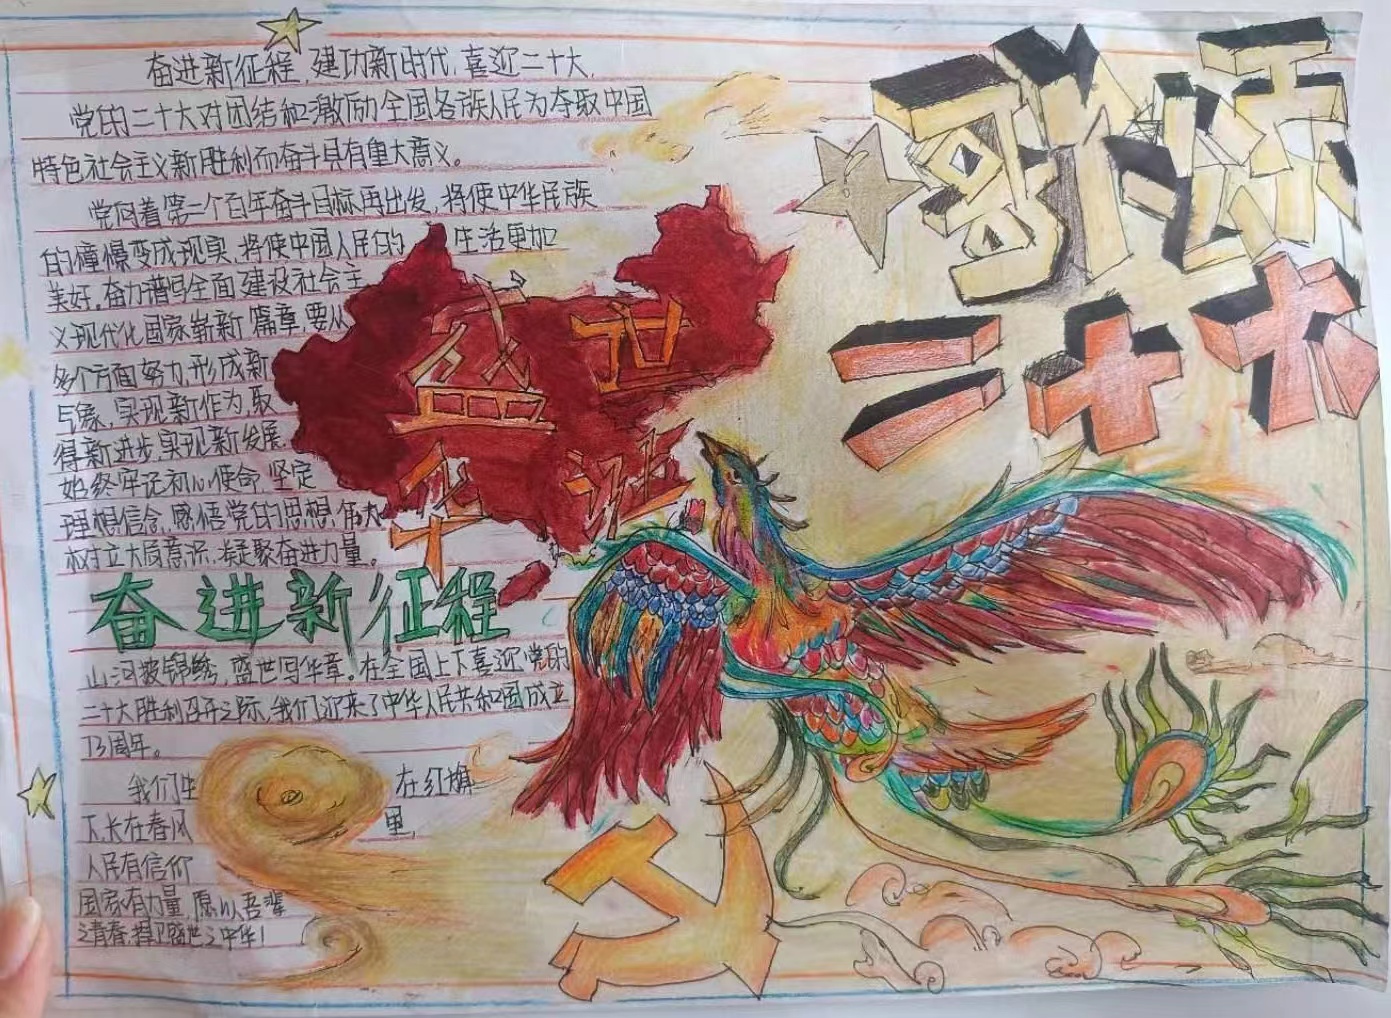 奋进新征程,建功新时代,喜迎二十大,
党的二十大对团结和激励全国各族人民为夺取中国
特色社会主义新胜利而奋斗具有重大意义。
党向着第二个百年奋斗目标再出发,将使中华民族
的憧憬变成现实,将使中国人民的 生活更加
美好。奋力谱写全面建设社会主
义现代化国家崭新篇章,要从
多个方面努力,形成新
气象,实现新作为,取
得新进步,实现新发展,
始终牢记初心使命,坚定
理想信念,感悟党的思想伟大
树立大局意识,凝聚奋进力量。
奋进新征程
山河披锦绣,盛世写华章。在全国上下喜迎党的
二十大胜利召开之际,我们迎来了中华人民共和国成立
73周年。
我们生 在红旗
下长在春风 里,
人民有信仰
国家有力量,愿以吾辈
之青春,捍卫盛世之中华!
盛世
华诞
歌颂
二十大